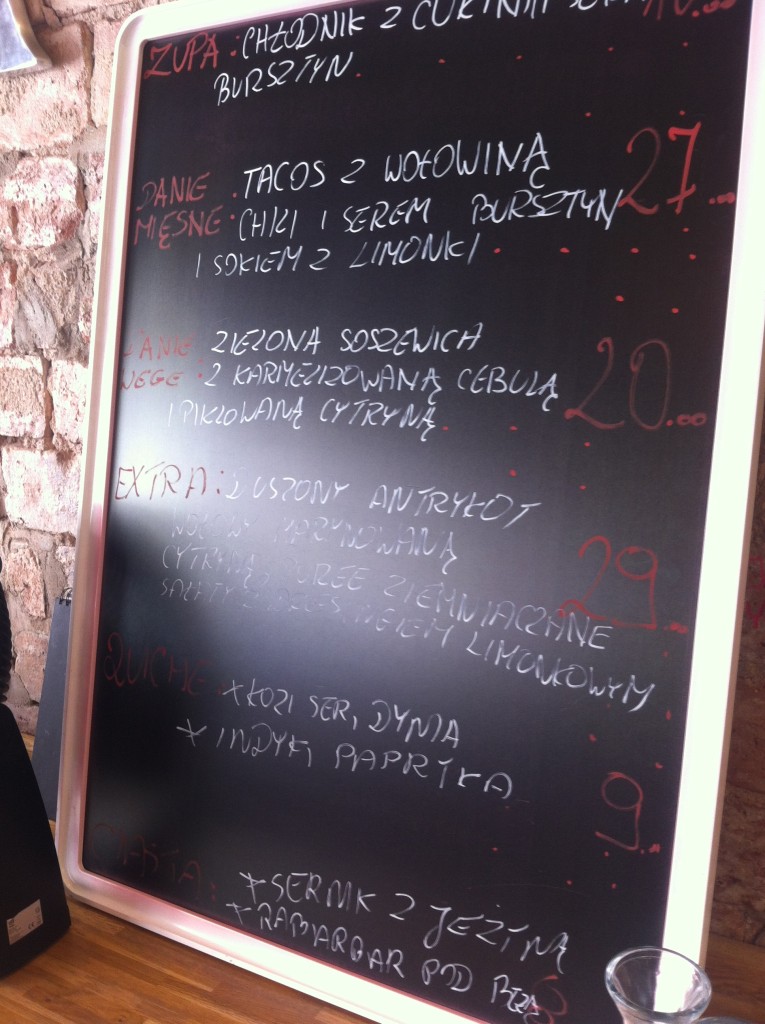 ZUPA: CHŁODNIK Z CUKINII
BURSZTYN.
DANIE MIĘSNE: TACOS Z WOŁOWINĄ 27.00
CHILI I SEREM BURSZTYN
I SOKIEM Z LIMONKI.
DANIE WEGE: ZIELONA SOSZEWICA 20.00
Z KARMELIZOWANĄ CEBULĄ
I PIKLOWANĄ CYTRYNĄ.
EXTRA: DUSZONY ANTRYKOT 29.
WOŁOWY MARYNOWANĄ
CYTRYNĄ, PUREE ZIEMNIACZANE
SAŁATY Z DRESSINGIEM LIMONKOWYM
QUICHE: * KOZI SER, DYNIA
* INDYK, PAPRYKA 9.
CIASTA: * SERNIK Z JEŻYNĄ
* RABARBAR POD BEZĄ